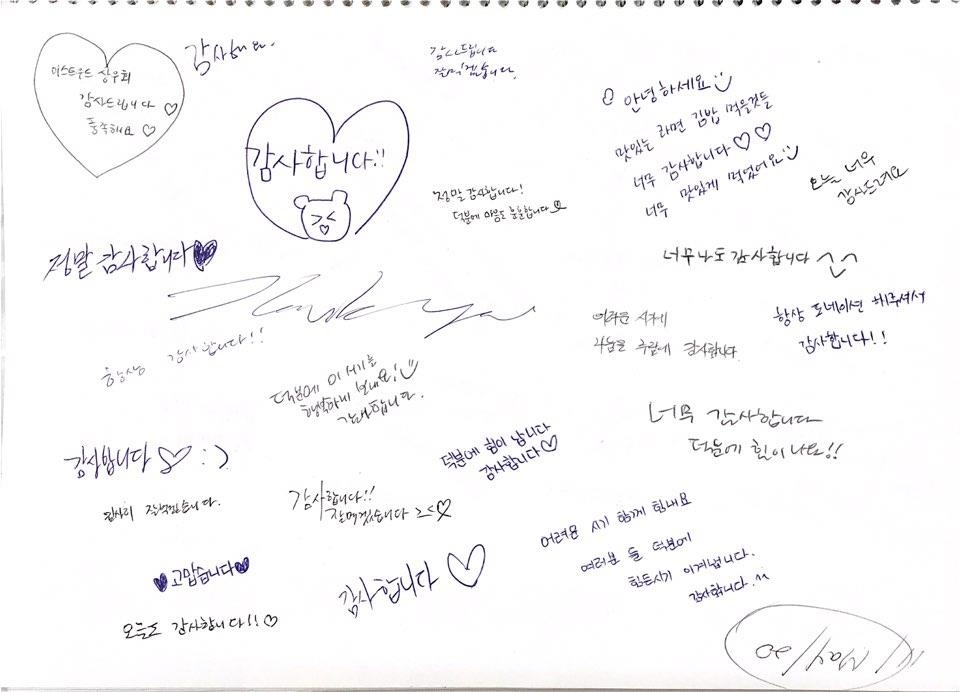 이스트우드 상우회
감사드립니다
풍족해요
감사해요.
감사드립니다
잘먹겠습니다.
감사합니다!!
안녕하세요
맛있는 라면 김밥 먹을것들
너무 감사합니다
너무 맛있게 먹었어요
오늘 너무
감사드려요
정말 감사합니다!
덕분에 마음도 훈훈합니다
정말 감사합니다
Thank you
너무나도 감사합니다
항상 도네이션 해주셔서
감사합니다!!
어려운 시기에
나눔을 주심에 감사합니다.
항상 감사합니다!!
덕분에 이 시기를
행복하게 보내요!
감사합니다.
너무 감사합니다
덕분에 힘이나요!!
감사합니다 :)
덕분에 힘이 납니다
감사합니다
감사히 잘먹겠습니다.
감사합니다!!
잘먹겠습니다 ><
어려운 시기 함께 힘내요
여러분들 덕분에
힘든시기 이겨냅니다.
감사합니다.^^
고맙습니다
감사합니다
오늘도 감사합니다!!
May/20